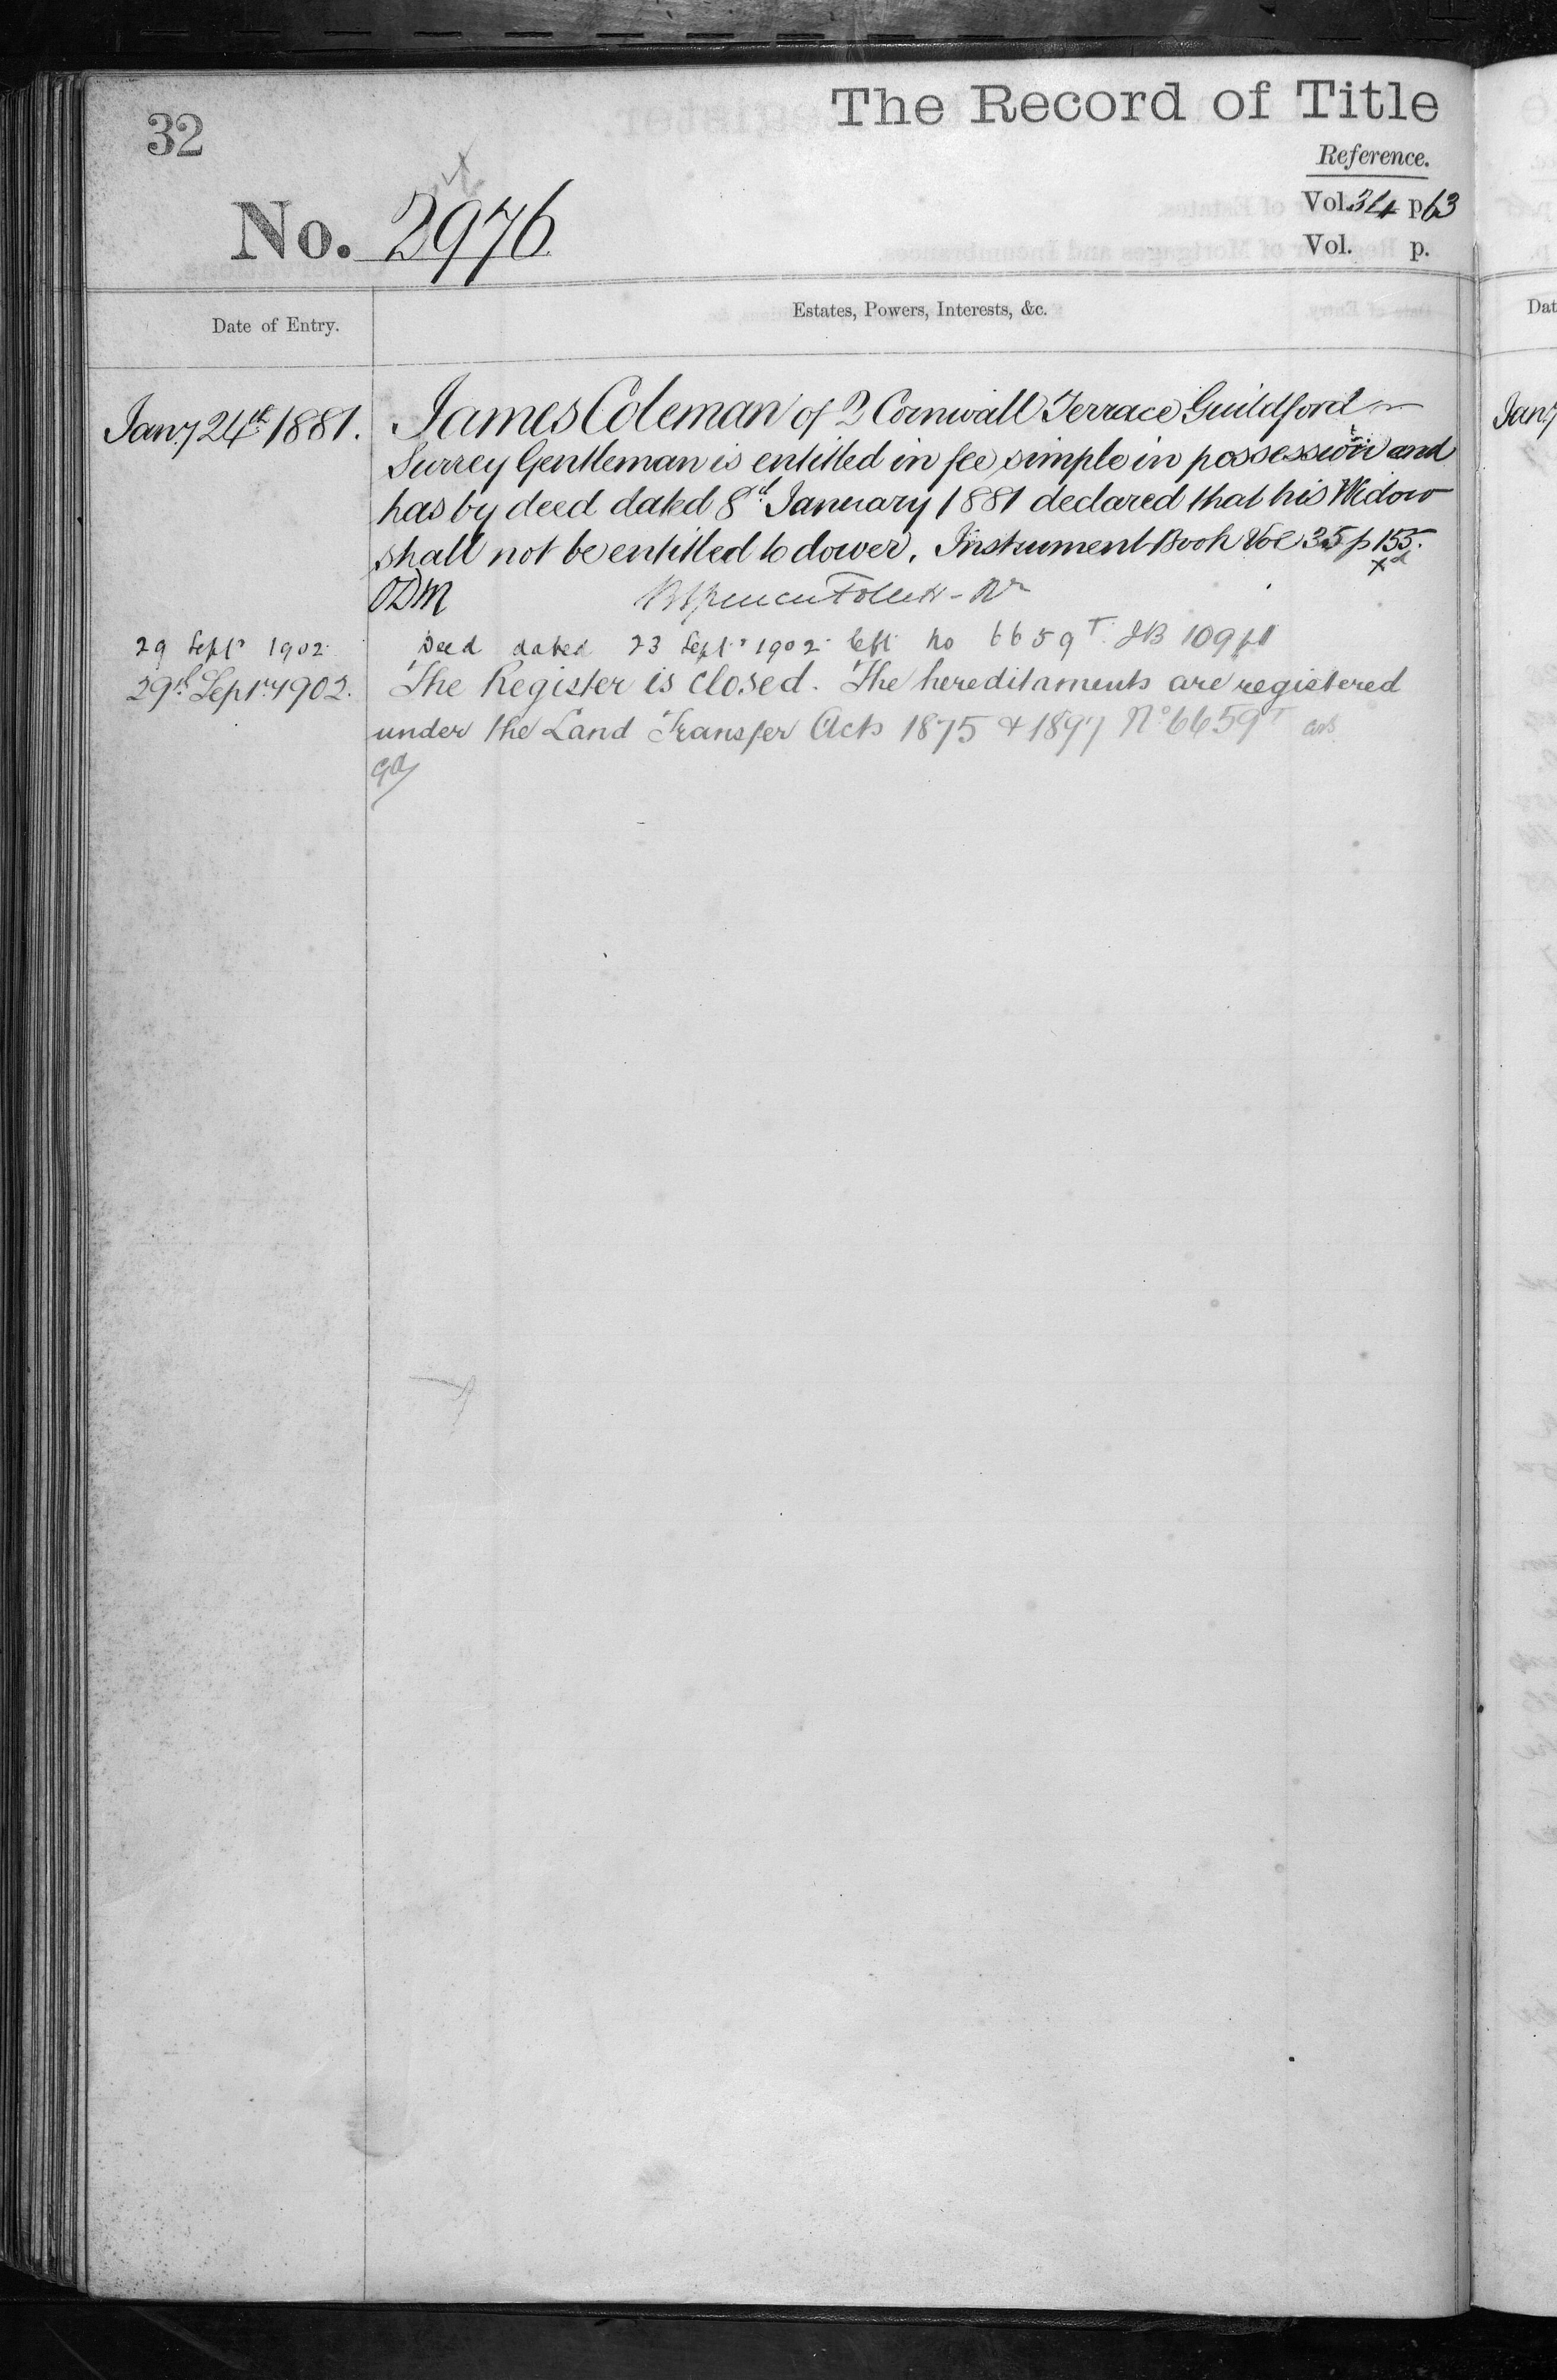 32
The Record of Title
Reference.
No. 2976
Vol. 34 p 63
Vol. p.
Date of Entry.
Estates, Powers, Interests, &c.
Jany 24th 1881. James Coleman of 2 Cornwall Terrace Guildford
Surrey Gentleman is entitled in fee simple in possession and
has by deed dated 8th January 1881 declared that his Widow
shall not be entitled to dower. Instrument Book Vol 35 p 155.
ODM
29 Septr 1902 Deed dated 23 Septr 1902 left No 6659T IB 109 p1
29th Septr 1902. The Register is closed. The hereditaments are registered
under the Land Transfer Acts 1875 & 1897 No 6659T
Dat
Jany